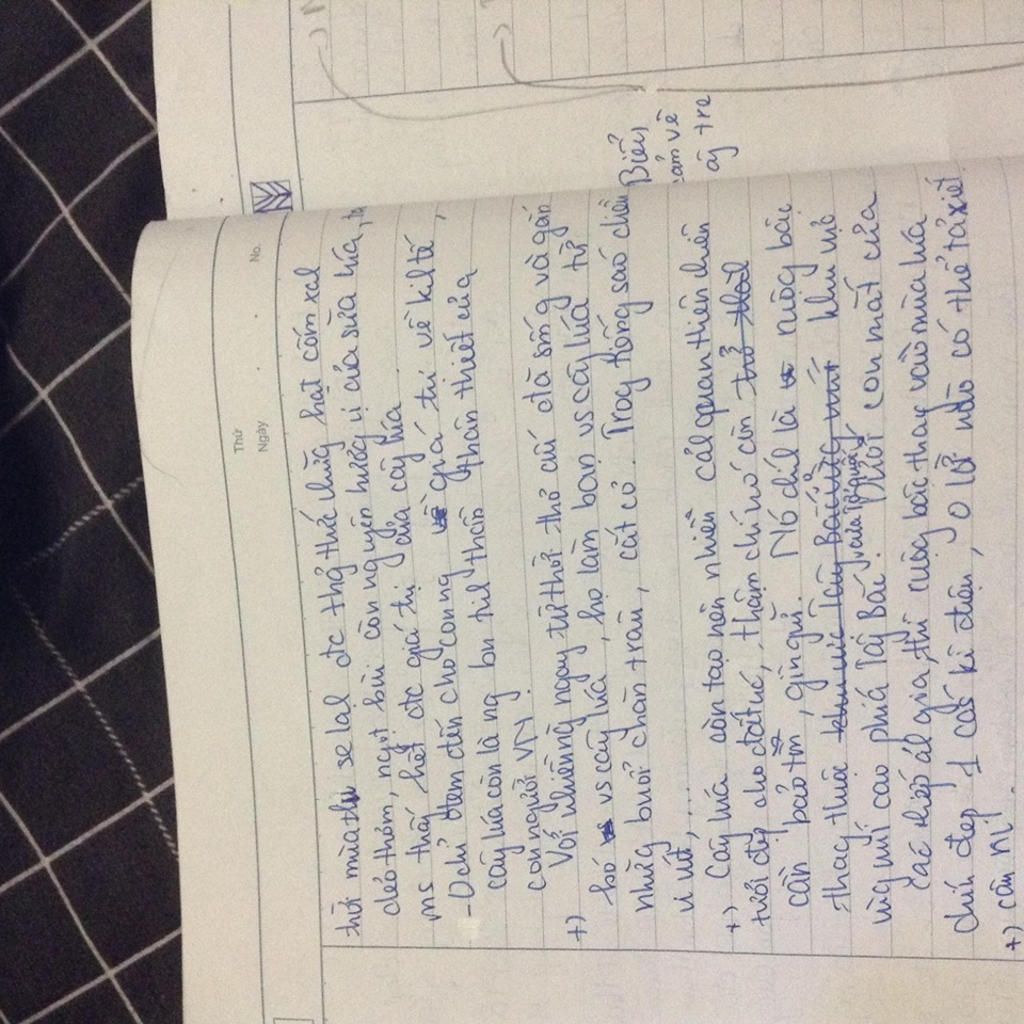 Thứ
Ngày
No.
thời mùa sẽ lại đc thả thức những hạt cốm xal
dẻo thơm, ngọt bùi còn nguyên hương vị của sữa lúa, ta
ms thấy hết đc giá trị của cây lúa.
- 0 chỉ đem đến cho con ng giá trị về kil tế,
cây lúa còn là ng bn til thần thân thiết của
con người VN.
+) Với nhiều ng ngay từ thời thơ ấu đã sống và gắn
bó vs cây lúa, họ làm bạn vs cây lúa từ
những buổi chăn trâu, cắt cỏ. Trog tiếng sáo chiều
vi vút,...
+) Cây lúa còn tạo nên nhiều cảl quan thiên nhiên
tươi đẹp cho đất nc, thậm chí nó còn
cần bảo tồn, gìn giữ. Nó chíl là ruộng bậc
thag thuộc khu vực Tây Bắc khu vực
vùng núi cao phía Tây Bắc. Dưới con mắt của
các nhiếp ảl gia, thì ruộng bậc thag vào mùa lúa
chín đẹp 1 cách kì diệu, 0 lời nào có thể tả xiết
+) cần ní
Biểu
cảm về
cây tre